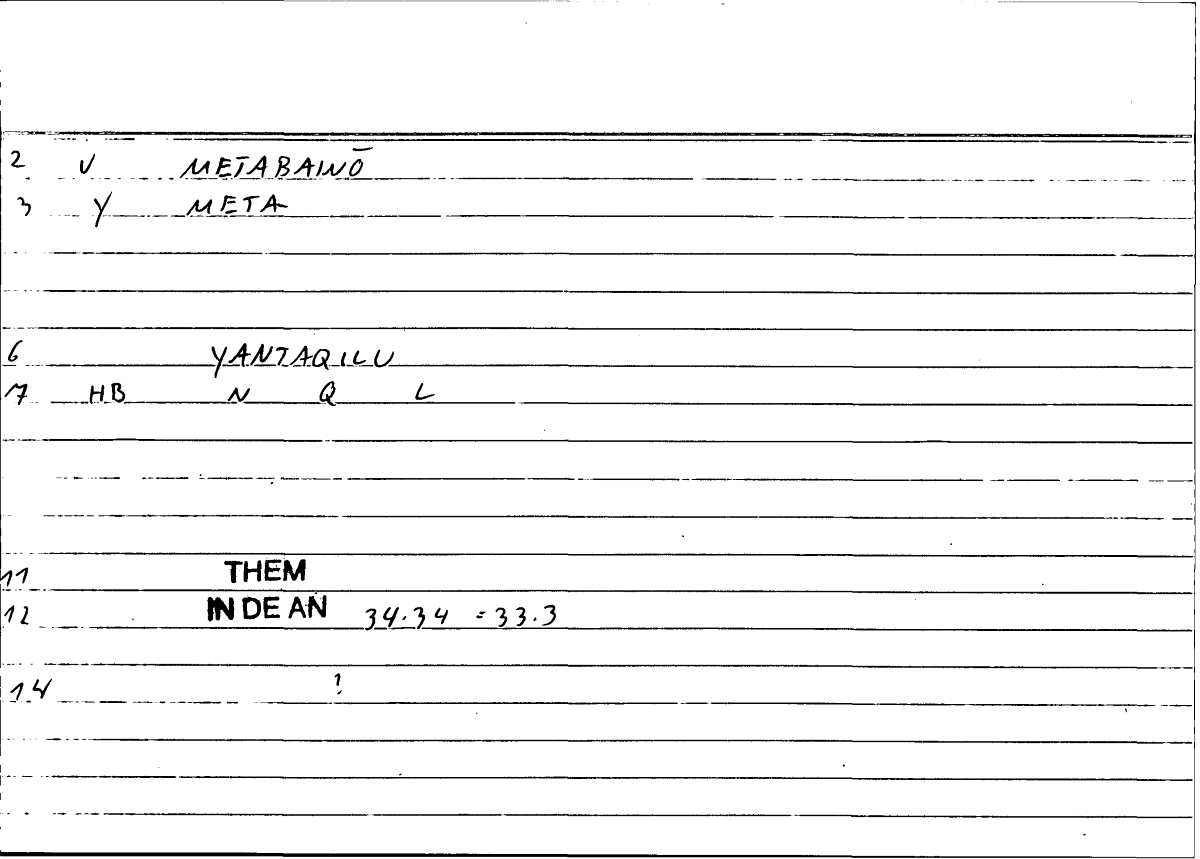 2 V METABAINŌ
3 Y META
6 YANTAQILU
7 HB N Q L
11 THEM
12 IN DE AN 34.34 = 33.3
14 ?